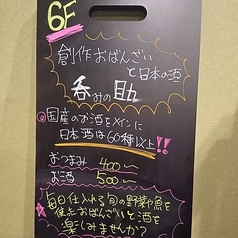 6F
創作おばんざい
と日本の酒
呑みの助
◎国産のお酒をメインに
日本酒は60種以上!!
おつまみ 400〜
お酒 500〜
毎日仕入れる旬の野菜や魚を
使たおばんざいと酒を
楽しみませんか?